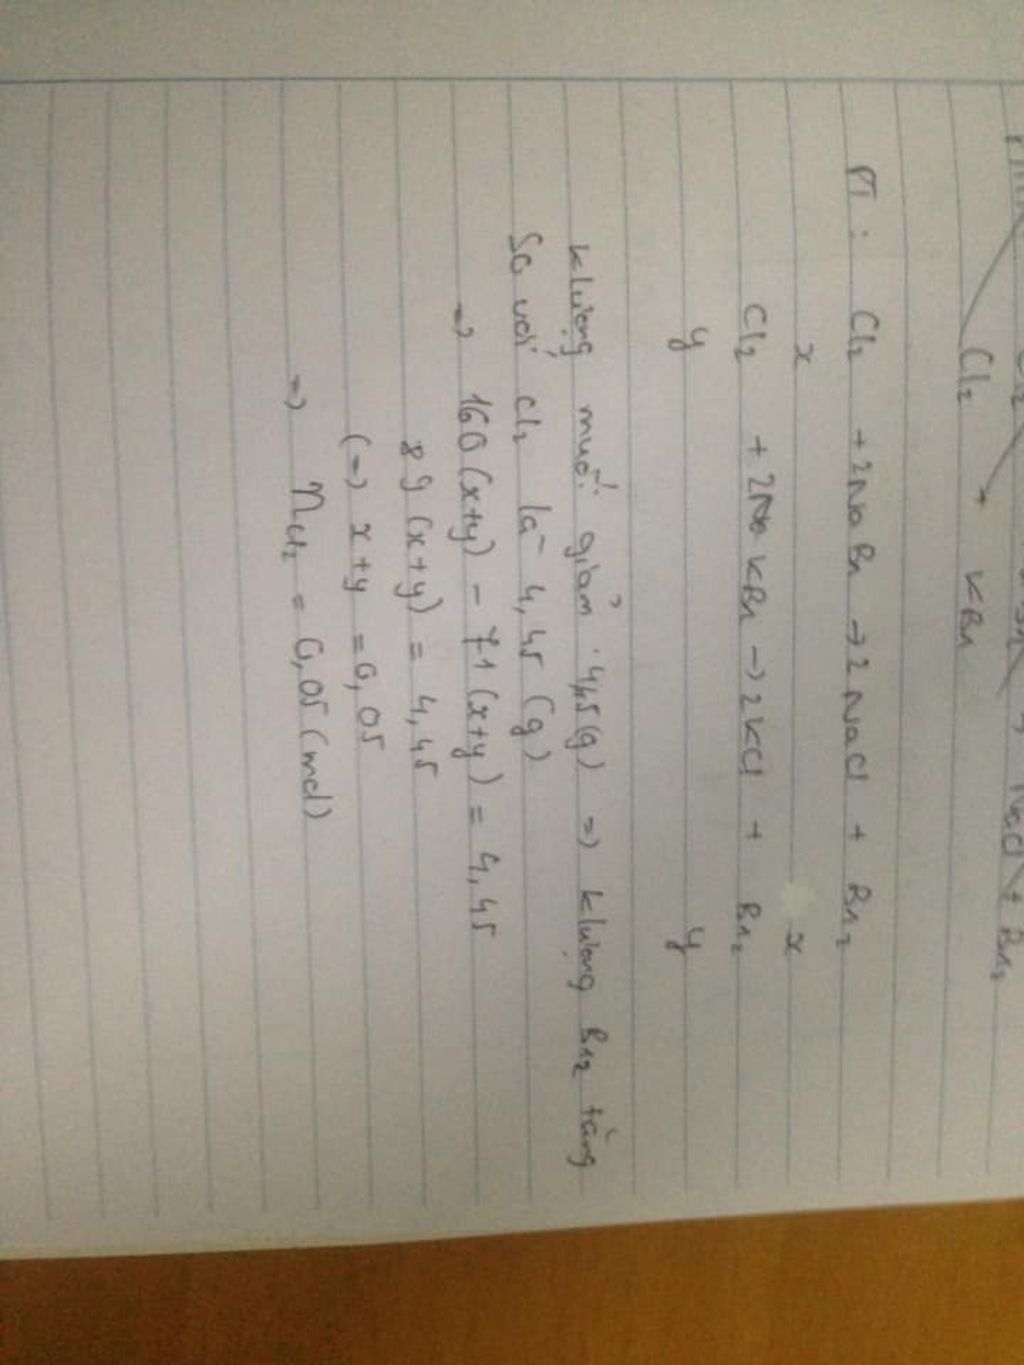 Cl₂ NaCl + Br₂
Cl₂ + KBr
PT : Cl₂ + 2NaBr → 2NaCl + Br₂
x x
Cl₂ + 2 KBr → 2KCl + Br₂
y y
Klượng muối giảm 4,45(g) => klượng Br₂ tăng
So với Cl₂ là 4,45 (g)
=> 160(x+y) - 71(x+y) = 4,45
89(x+y) = 4,45
(=) x+y = 0,05
=> nCl₂ = 0,05 (mol)